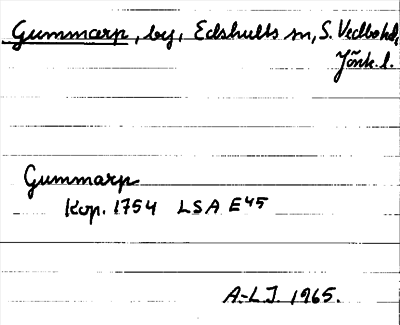 Gummarp, by, Edshults sn, S. Vedbo hd,
Jönk. l.
Gummarp
Kop. 1754 LSA E45
A-LJ 1965.